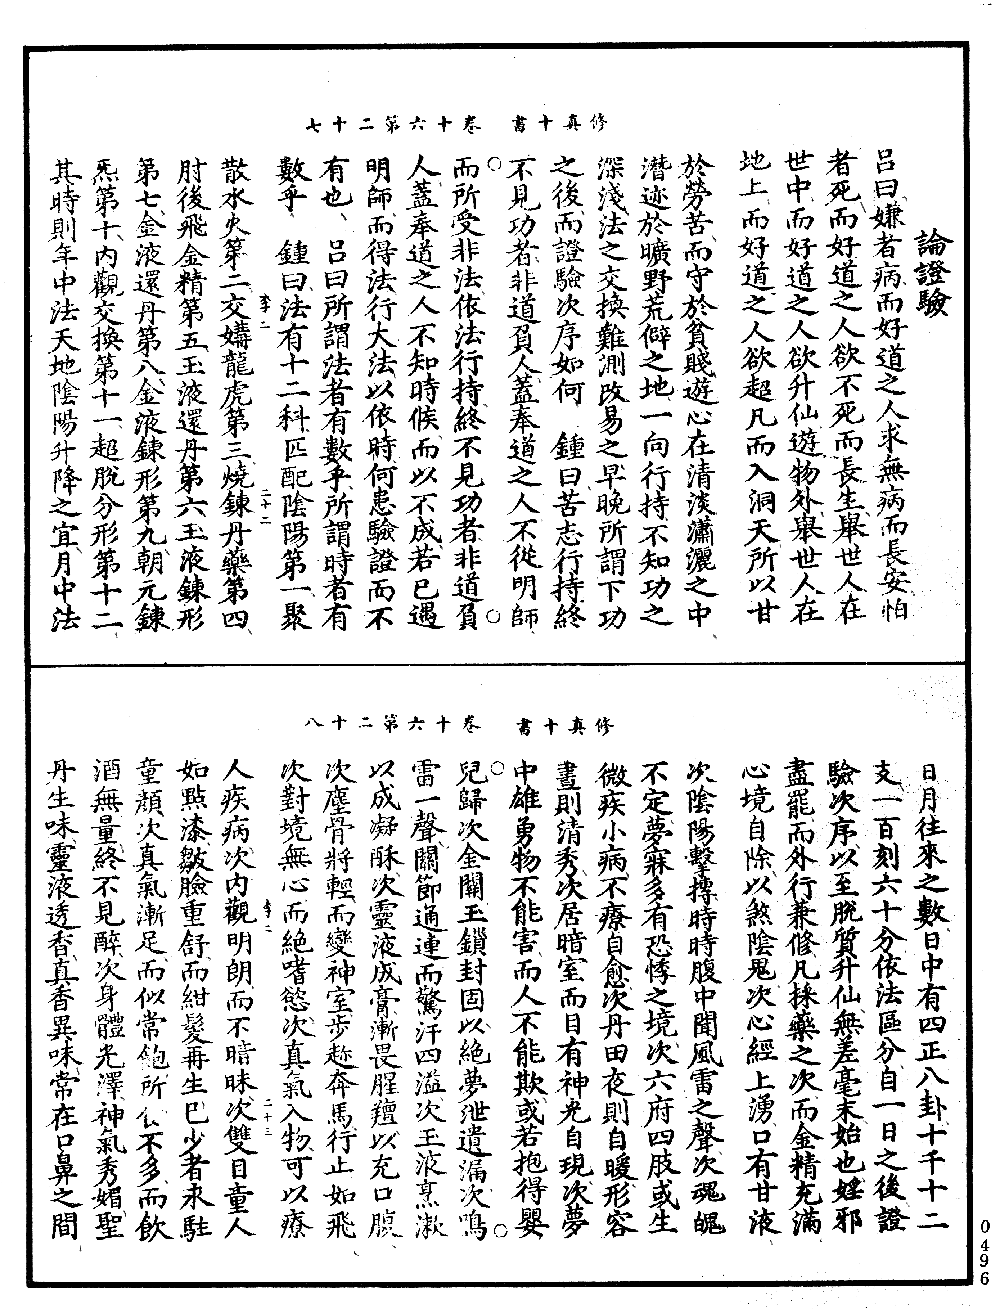 修真十書　卷十六第二十七
論證驗
呂曰嫌者病而好道之人求無病而長安怕
者死而好道之人欲不死而長生舉世人在
世中而好道之人欲升仙遊物外舉世人在
地上而好道之人欲超凡而入洞天所以甘
於勞苦而守於貧賤遊心在清淡瀟灑之中
潛迹於曠野荒僻之地一向行持不知功之
深淺法之交換難測改易之早晚所謂下功
之後而證驗次序如何　鍾曰苦志行持終
不見功者非道負人蓋奉道之人不從明師
而所受非法依法行持終不見功者非道負
人蓋奉道之人不知時候而以不成若已遇
明師而得法行大法以依時何患驗證而不
有也　呂曰所謂法者有數乎所謂時者有
數乎　鍾曰法有十二科匹配陰陽第一聚
李二　二十二
散水火第二交媾龍虎第三燒鍊丹藥第四
肘後飛金精第五玉液還丹第六玉液鍊形
第七金液還丹第八金液鍊形第九朝元鍊
炁第十內觀交換第十一超脫分形第十二
其時則年中法天地陰陽升降之宜月中法
修真十書　卷十六第二十八
日月往來之數日中有四正八卦十干十二
支一百刻六十分依法區分自一日之後證
驗次序以至脫質升仙無差毫末始也婬邪
盡罷而外行兼修凡採藥之次而金精充滿
心境自除以煞陰鬼次心經上湧口有甘液
次陰陽擊摶時時腹中聞風雷之聲次魂魄
不定夢寐多有恐悸之境次六府四肢或生
微疾小病不療自愈次丹田夜則自暖形容
晝則清秀次居暗室而目有神光自現次夢
中雄勇物不能害而人不能欺或若抱得嬰
兒歸次金關玉鎖封固以絕夢泄遺漏次鳴
雷一聲關節通連而驚汗四溢次玉液烹漱
以成凝酥次靈液成膏漸畏腥羶以充口腹
次塵骨將輕而變神室步趂奔馬行止如飛
次對境無心而絕嗜慾次真氣入物可以療
李二　二十三
人疾病次內觀明朗而不暗昧次雙目童人
如點漆皺臉重舒而紺髮再生已少者永駐
童顏次真氣漸足而似常飽所食不多而飲
酒無量終不見醉次身體光澤神氣秀媚聖
丹生味靈液透香真香異味常在口鼻之間
0496